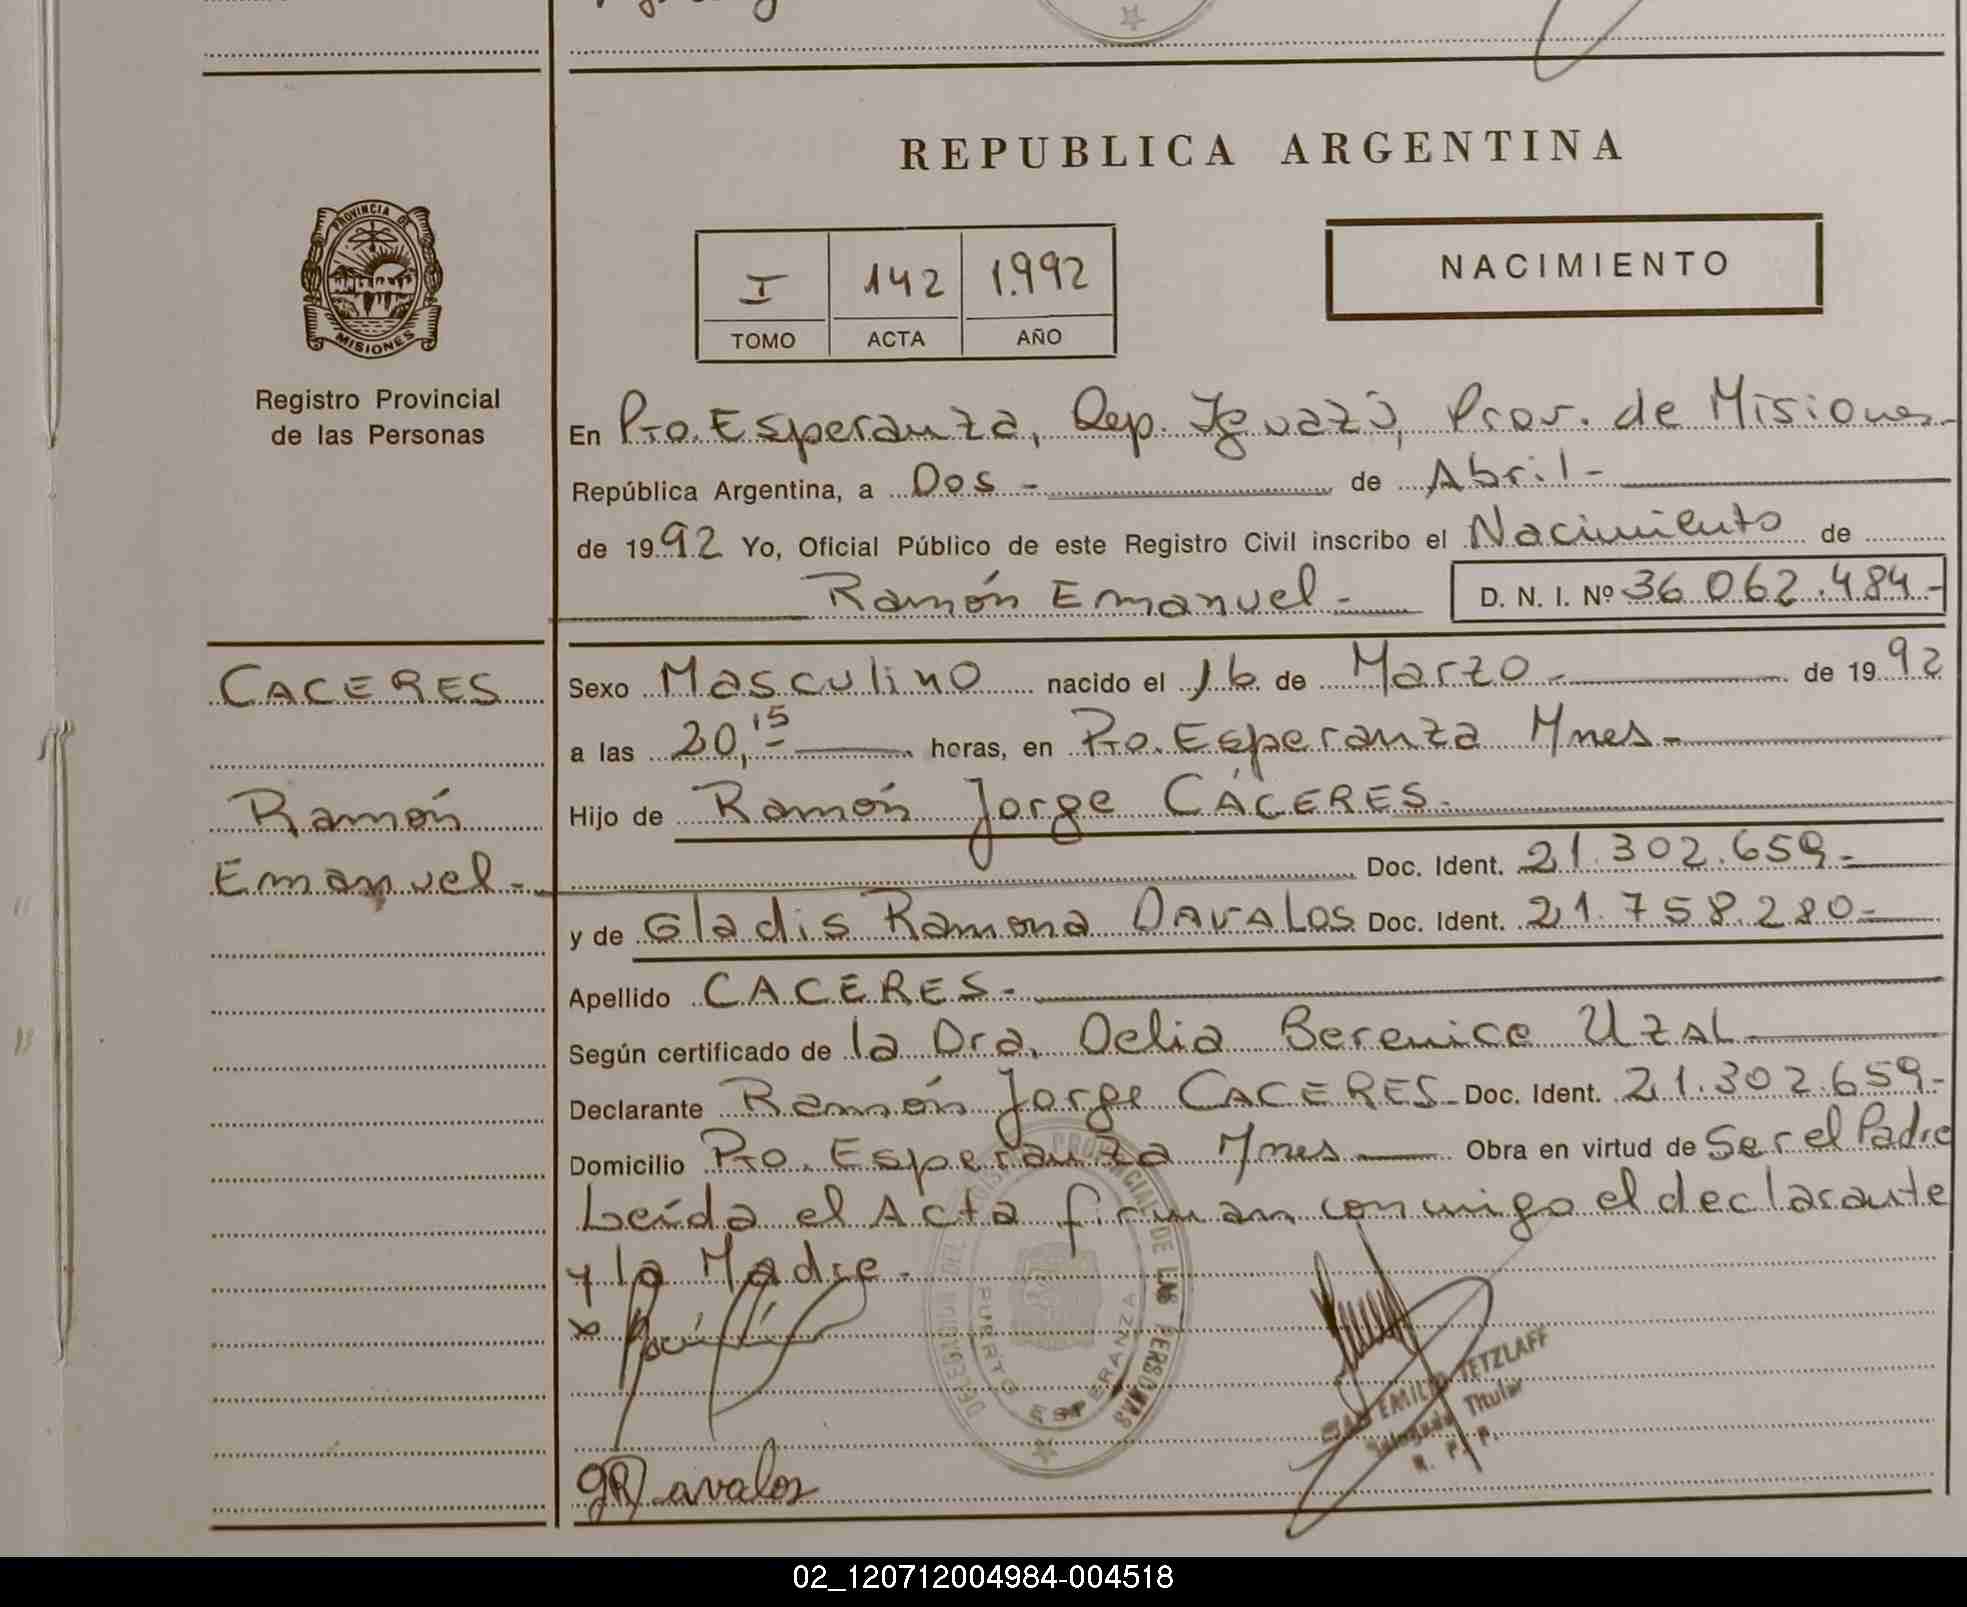 REPUBLICA ARGENTINA
PROVINCIA DE
MISIONES
Registro Provincial
de las Personas
I 142 1.992
TOMO ACTA AÑO
NACIMIENTO
En Pto. Esperanza, Dep. Iguazú, Prov. de Misiones-
República Argentina, a Dos - de Abril -
de 1992 Yo, Oficial Público de este Registro Civil inscribo el Nacimiento de
Ramón Emanuel - D. N. I. Nº 36 062.484-
CACERES
Ramón
Emanuel -
Sexo Masculino nacido el 16 de Marzo - de 1992
a las 20,15 horas, en Pto. Esperanza Mnes-
Hijo de Ramón Jorge CÁCERES-
Doc. Ident. 21.302.659-
y de Gladis Ramona DAVALOS Doc. Ident. 21.758.280-
Apellido CACERES-
Según certificado de la Dra. Delia Berenice UZAL
Declarante Ramón Jorge CACERES- Doc. Ident. 21.302.659-
Domicilio Pto. Esperanza Mnes Obra en virtud de Ser el Padre
Leída el Acta firman conmigo el declarante
y la Madre.
x
DELEGACION DEL REGISTRO PROVINCIAL DE LAS PERSONAS
PUERTO ESPERANZA
EMILIO TETZLAFF
Delegado Titular
R. P. P.
GRDavalos
02_120712004984-004518